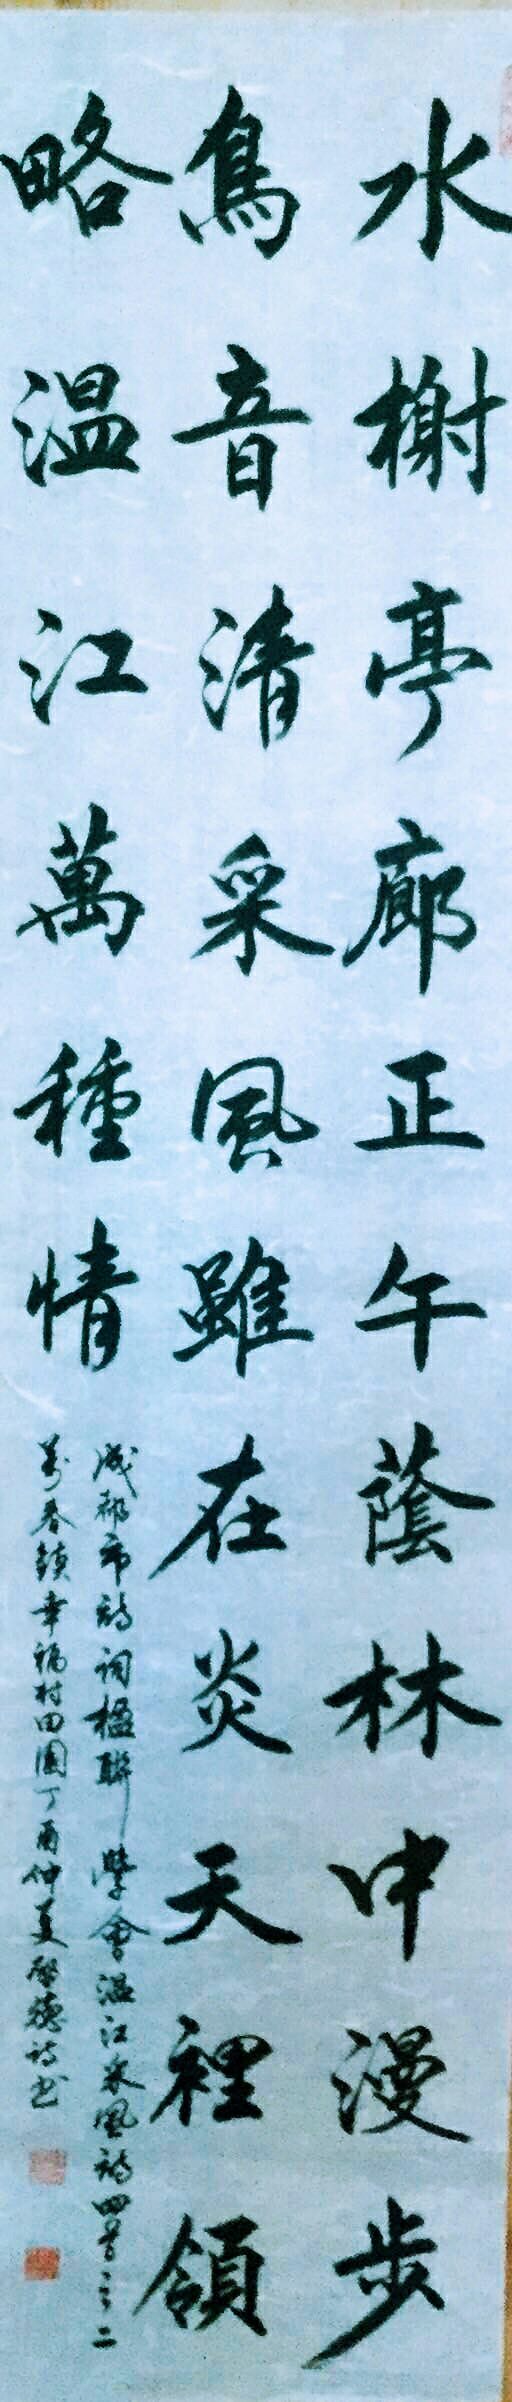 水榭亭廊正午蔭林中漫步
鳥音清采風雖在炎天裡領
略温江萬種情
成都市詩詞楹聯學會温江采風詩四首之二
萬春鎮幸福村田園丁酉仲夏啓德詩書